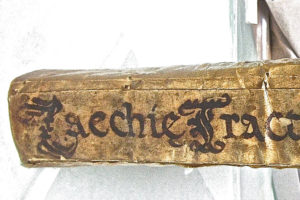 Zacchie Tract